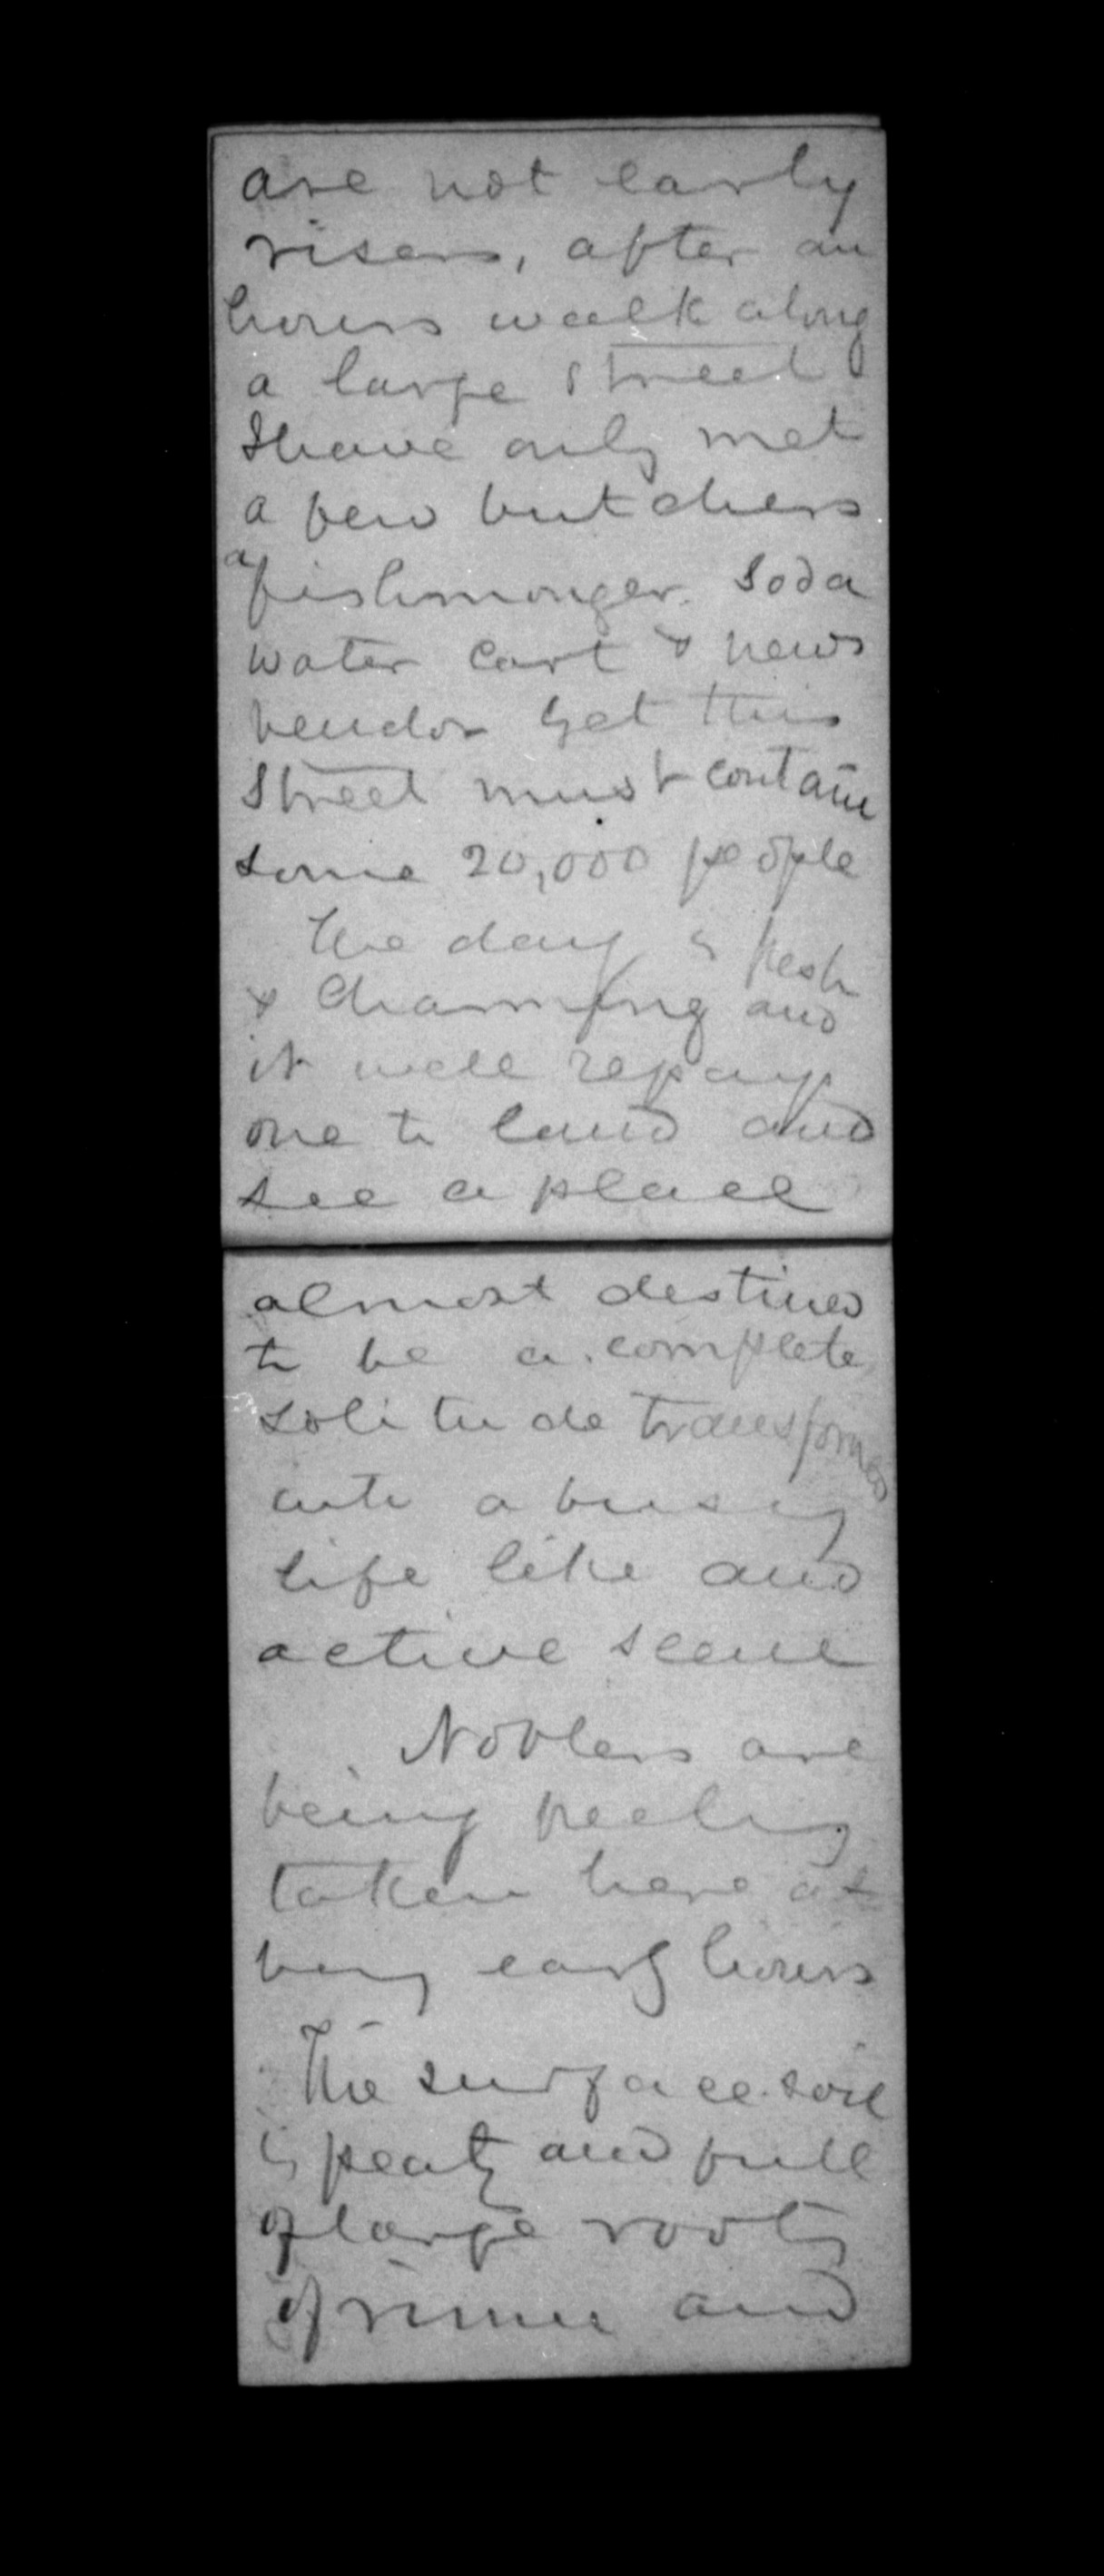 are not early
risers, after an
hours walk along
a large street
I have only met
a few butchers
a fishmonger. Soda
water cart & news
vendor Yet this
Street must contain
some 20,000 people
The day is fresh
& charming and
it well repays
one to land and
see a place
almost destined
to be a complete
solitude transformed
into a busy
life like and
active scene
Noblers are
being freely
taken here at
very early hours
The surface soil
is peaty and full
of large roots
of rimu and